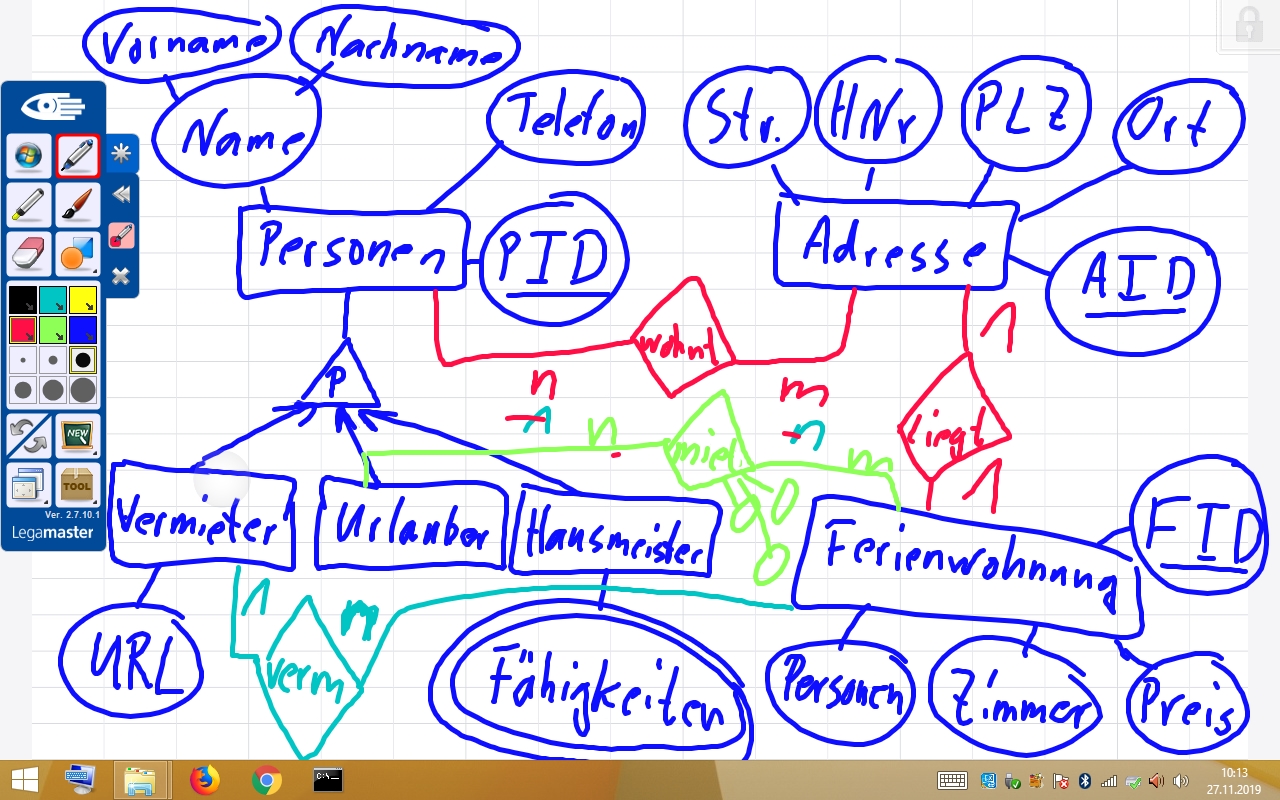 Vorname
Nachname
Name
Telefon
Str.
HNr
PLZ
Ort
Personen
PID
Adresse
AID
wohnt
1
n
m
1
n
P
n
miet
m
liegt
1
Vermieter
Urlauber
Hausmeister
Ferienwohnung
FID
1
m
URL
verm
Fähigkeiten
Personen
Zimmer
Preis
NEW
TOOL
Ver. 2.7.10.1
Legamaster
C:\_
10:13
27.11.2019